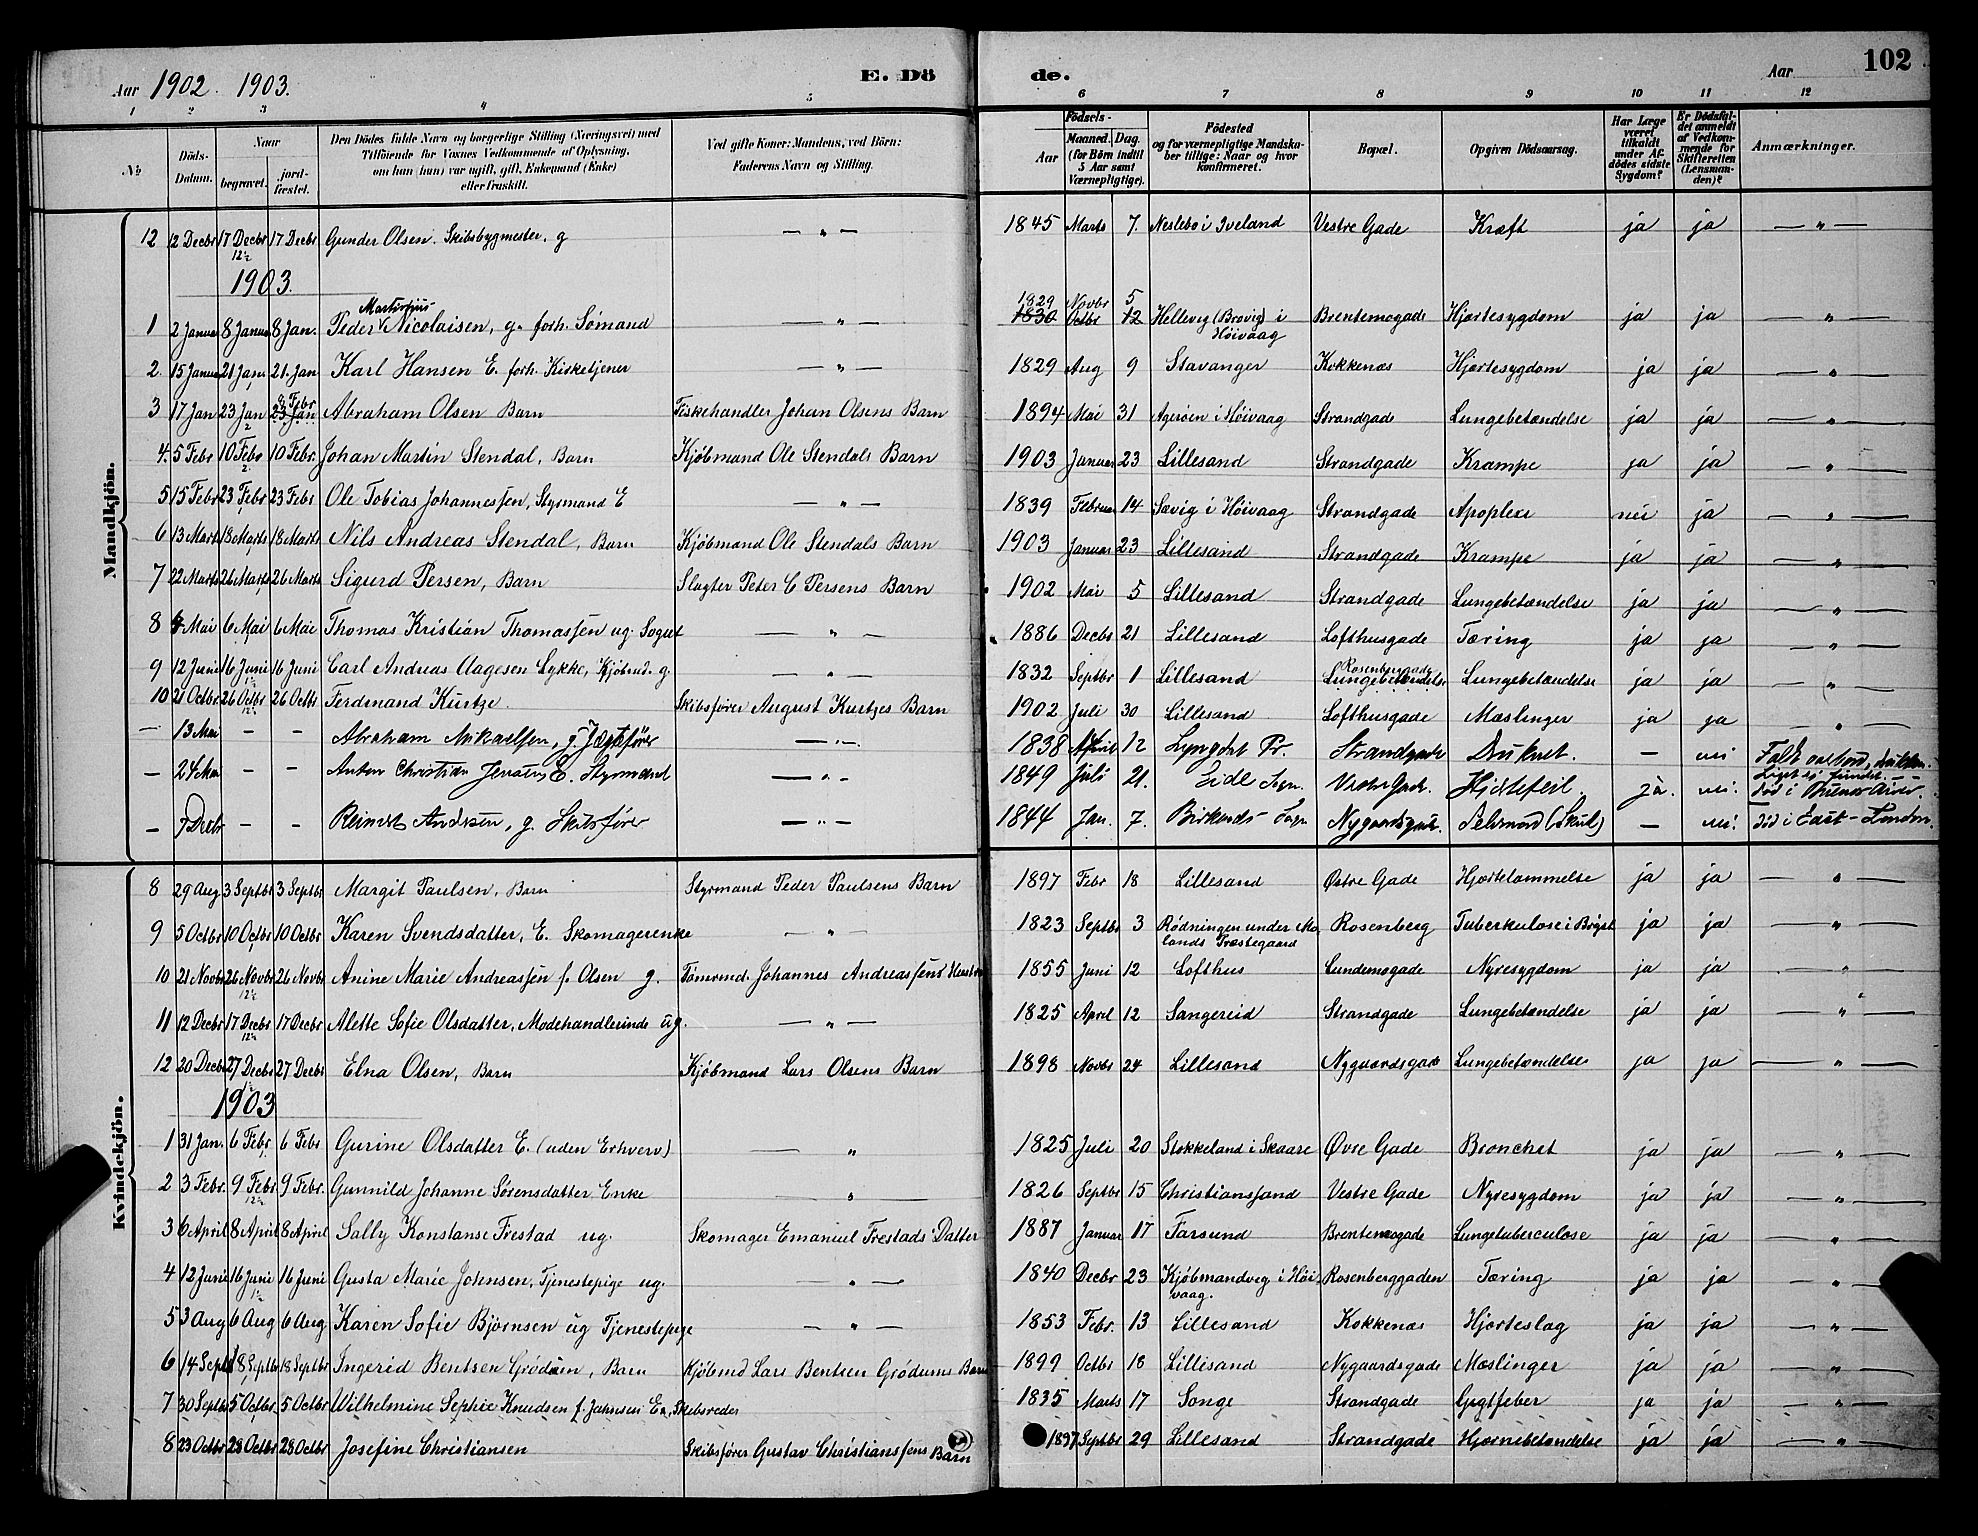 Aar 1902. 1903. E. Dö de. Aar 102
1 2 3 4 5 6 7 8 9 10 11 12
№ Döds-Datum. Naar begravet. jordfæstet. Den Dödes fulde Navn og borgerlige Stilling (Næringsvei) med Tilföiende for Voxnes Vedkommende af Oplysning, om han (hun) var ugift, gift, Enkemand (Enke) eller fraskilt. Ved gifte Koner: Mandens, ved Börn: Faderens Navn og Stilling. Födsels- Aar Maaned. Dag. (for Börn indtil 5 Aar samt Værnepligtige). Födested og for værnepligtige Mandskaber tillige: Naar og hvor konfirmeret. Bopæl. Opgiven Dödsaarsag. Har Læge været tilkaldt under Afdödes sidste Sygdom? Er Dödsfaldet anmeldt af Vedkommende for Skifteretten (Lensmanden)? Anmærkninger.
Mandkjön.
12 12 Decbr 17 Decbr 12½ 17 Decbr Gunder Olsen. Skibsbygmester. g — „ — 1845 Marts 7. Neslebø i Iveland Vestre Gade Kræft ja ja — „ —
1903.
1 2 Januar 8 Januar 8 Jan. Peder Martinius Nicolaisen, g. forh. Sømand — „ — 1829 1830 Novbr Octbr 5 12 Hellevig (Brovig) i Høivaag Brentemogade Hjertesygdom ja ja — „ —
2. 15 Januar 21 Jan. 21. Jan Karl Hansen E. forh. Kirketjener — „ — 1829 Aug 9 Stavanger Kokkenæs Hjertesygdom ja ja — „ —
3 17 Jan 23 Jan 2 23 Jan 8 Febr Abraham Olsen Barn Fiskehandler Johan Olsens Barn 1894 Mai 31 Agerøen i Høivaag Strandgade Lungebetændelse ja ja — „ —
4. 5 Febr 10 Febr 2 10 Febr. Johan Martin Stendal, Barn Kjøbmand Ole Stendals Barn 1903 Januar 23 Lillesand Strandgade Krampe ja ja — „ —
5 15 Febr 23 Febr 23 Febr Ole Tobias Johannessen, Styrmand E — „ — 1839 Februar 14 Sævig i Høivaag Strandgade Apoplexi nei ja — „ —
6 13 Marts 18 Marts 18 Marts Nils Andreas Stendal, Barn Kjøbmand Ole Stendals Barn 1903 Januar 23 Lillesand Strandgade Krampe ja ja — „ —
7 22 Marts 26 Marts 26 Marts Sigurd Persen, Barn Slagter Peter C Persens Barn 1902 Mai 5 Lillesand Strandgade Lungebetændelse ja ja — „ —
8 4 Mai 6 Mai 6 Mai Thomas Kristian Thomassen ug. Sogut — „ — 1886 Decbr 21 Lillesand Lofthusgade Tæring ja ja — „ —
9 12 Juni 16 Juni 16 Juni Carl Andreas Aagesen Lykke, Kjøbmd. g. — „ — 1832 Septbr 1 Lillesand Rosenberggade Lungebetændelse Lungebetændelse ja ja — „ —
10 21 Octbr 26 Octbr 12½ 26 Octbr Ferdinand Kurtze. Skibsfører August Kurtzes Barn 1902 Juli 30 Lillesand Lofthusgade Mæslinger ja ja — „ —
— 13 Mai — — Abraham Mikaelsen, g Jægtefører — „ — 1838 April 12 Lyngdal Pr. Strandgade Druknet. — nei Faldt overbord, Liget ei fundet.
— 24 Mai — — Anton Christian Jensen E. Styrmand — „ — 1849 Juli 21. Eide Sogn. Vestre Gade. Hjertefeil. ja. nei. død i Buenos Aires.
— 7 Decbr — — Reinert Andersen, g. Skibsfører — „ — 1844 Jan. 7. Birkenes Sogn Nygaardsgade. Selvmord (Skud) — nei. død i East-London.
Kvindekjön.
8 29 Aug 3 Septbr 3 Septbr Margit Paulsen, Barn Styrmand Peder Paulsens Barn 1897 Febr 18 Lillesand Østre Gade Hjertelammelse ja ja — „ —
9 5 Octbr 10 Octbr 10 Octbr Karen Svendsdatter, E. Skomagerenke — „ — 1823 Septbr 3 Rødningen under Molands Præstegaard Rosenberg Tuberkulose i Bryst ja ja — „ —
10 21 Novbr 26 Novbr 12½ 26 Novbr Anine Marie Andreassen f. Olsen g. Tømrmd. Johannes Andreassens Hustru 1855 Juni 12 Lofthus Lundemogade Nyresygdom ja ja „
11 12 Decbr 17 Decbr 12½ 17 Decbr Alette Sofie Olsdatter, Modehandlerinde ug. — „ — 1825 April 12 Sangereid Strandgade Lungebetændelse ja ja — „ —
12 20 Decbr 27 Decbr 1½ 27 Decbr Elna Olsen, Barn Kjøbmand Lars Olsens Barn 1898 Novbr 24 Lillesand Nygaardsgade Lungebetændelse ja ja — „ —
1903
1 31 Jan. 6 Febr. 6 Febr Gurine Olsdatter E. (uden Erhverv) — „ 1825 Juli 20 Stokkeland i Skaare Øvre Gade Bronchit ja ja — „ —
2 3 Febr. 9 Febr 12½ 9 Febr. Gunnild Johanne Sørensdatter Enke „ — 1826 Septbr 15 Christianssand Vestre Gade Nyresygdom ja ja — „ —
3 6 April 8 April 8 April Sally Konstanse Frestad ug. Skomager Emanuel Frestads Datter 1887 Januar 17 Farsund Brentemogade Lungetuberculose ja ja — „ —
4 12 Juni 16 Juni 1½ 16 Juni Gusta Marie Jotensen, Tjenestepige ug. „ — 1840 Decbr 23 Kjøbmandvig i Høivaag. Rosenberggaden Tæring ja ja — „ —
5 3 Aug 6 Aug 6 Aug Karen Sofie Bjørnsen ug Tjenestepige — „ — 1853 Febr. 13 Lillesand Kokkenæs Hjerteslag ja ja — „ —
6 14 Septbr 18 Septbr 18 Septbr Ingerid Bentsen Grødum, Barn Kjøbmd Lars Bentsen Grødums Barn 1899 Octbr 18 Lillesand Nygaardsgade Mæslinger ja ja — „ —
7 30 Septbr 5 Octbr. 5 Octbr Wilhelmine Sophie Knudsen f. Jahnsen En. Skibsreder 1835 Marts 17 Songe Strandgade Gigtfeber ja ja — „ —
8 23 Octbr 28 Octbr 28 Octbr Josefine Christiansen Skibsfører Gustav Christiansens Barn 1897 Septbr 29 Lillesand Strandgade Hjernebetændelse ja ja — „ —